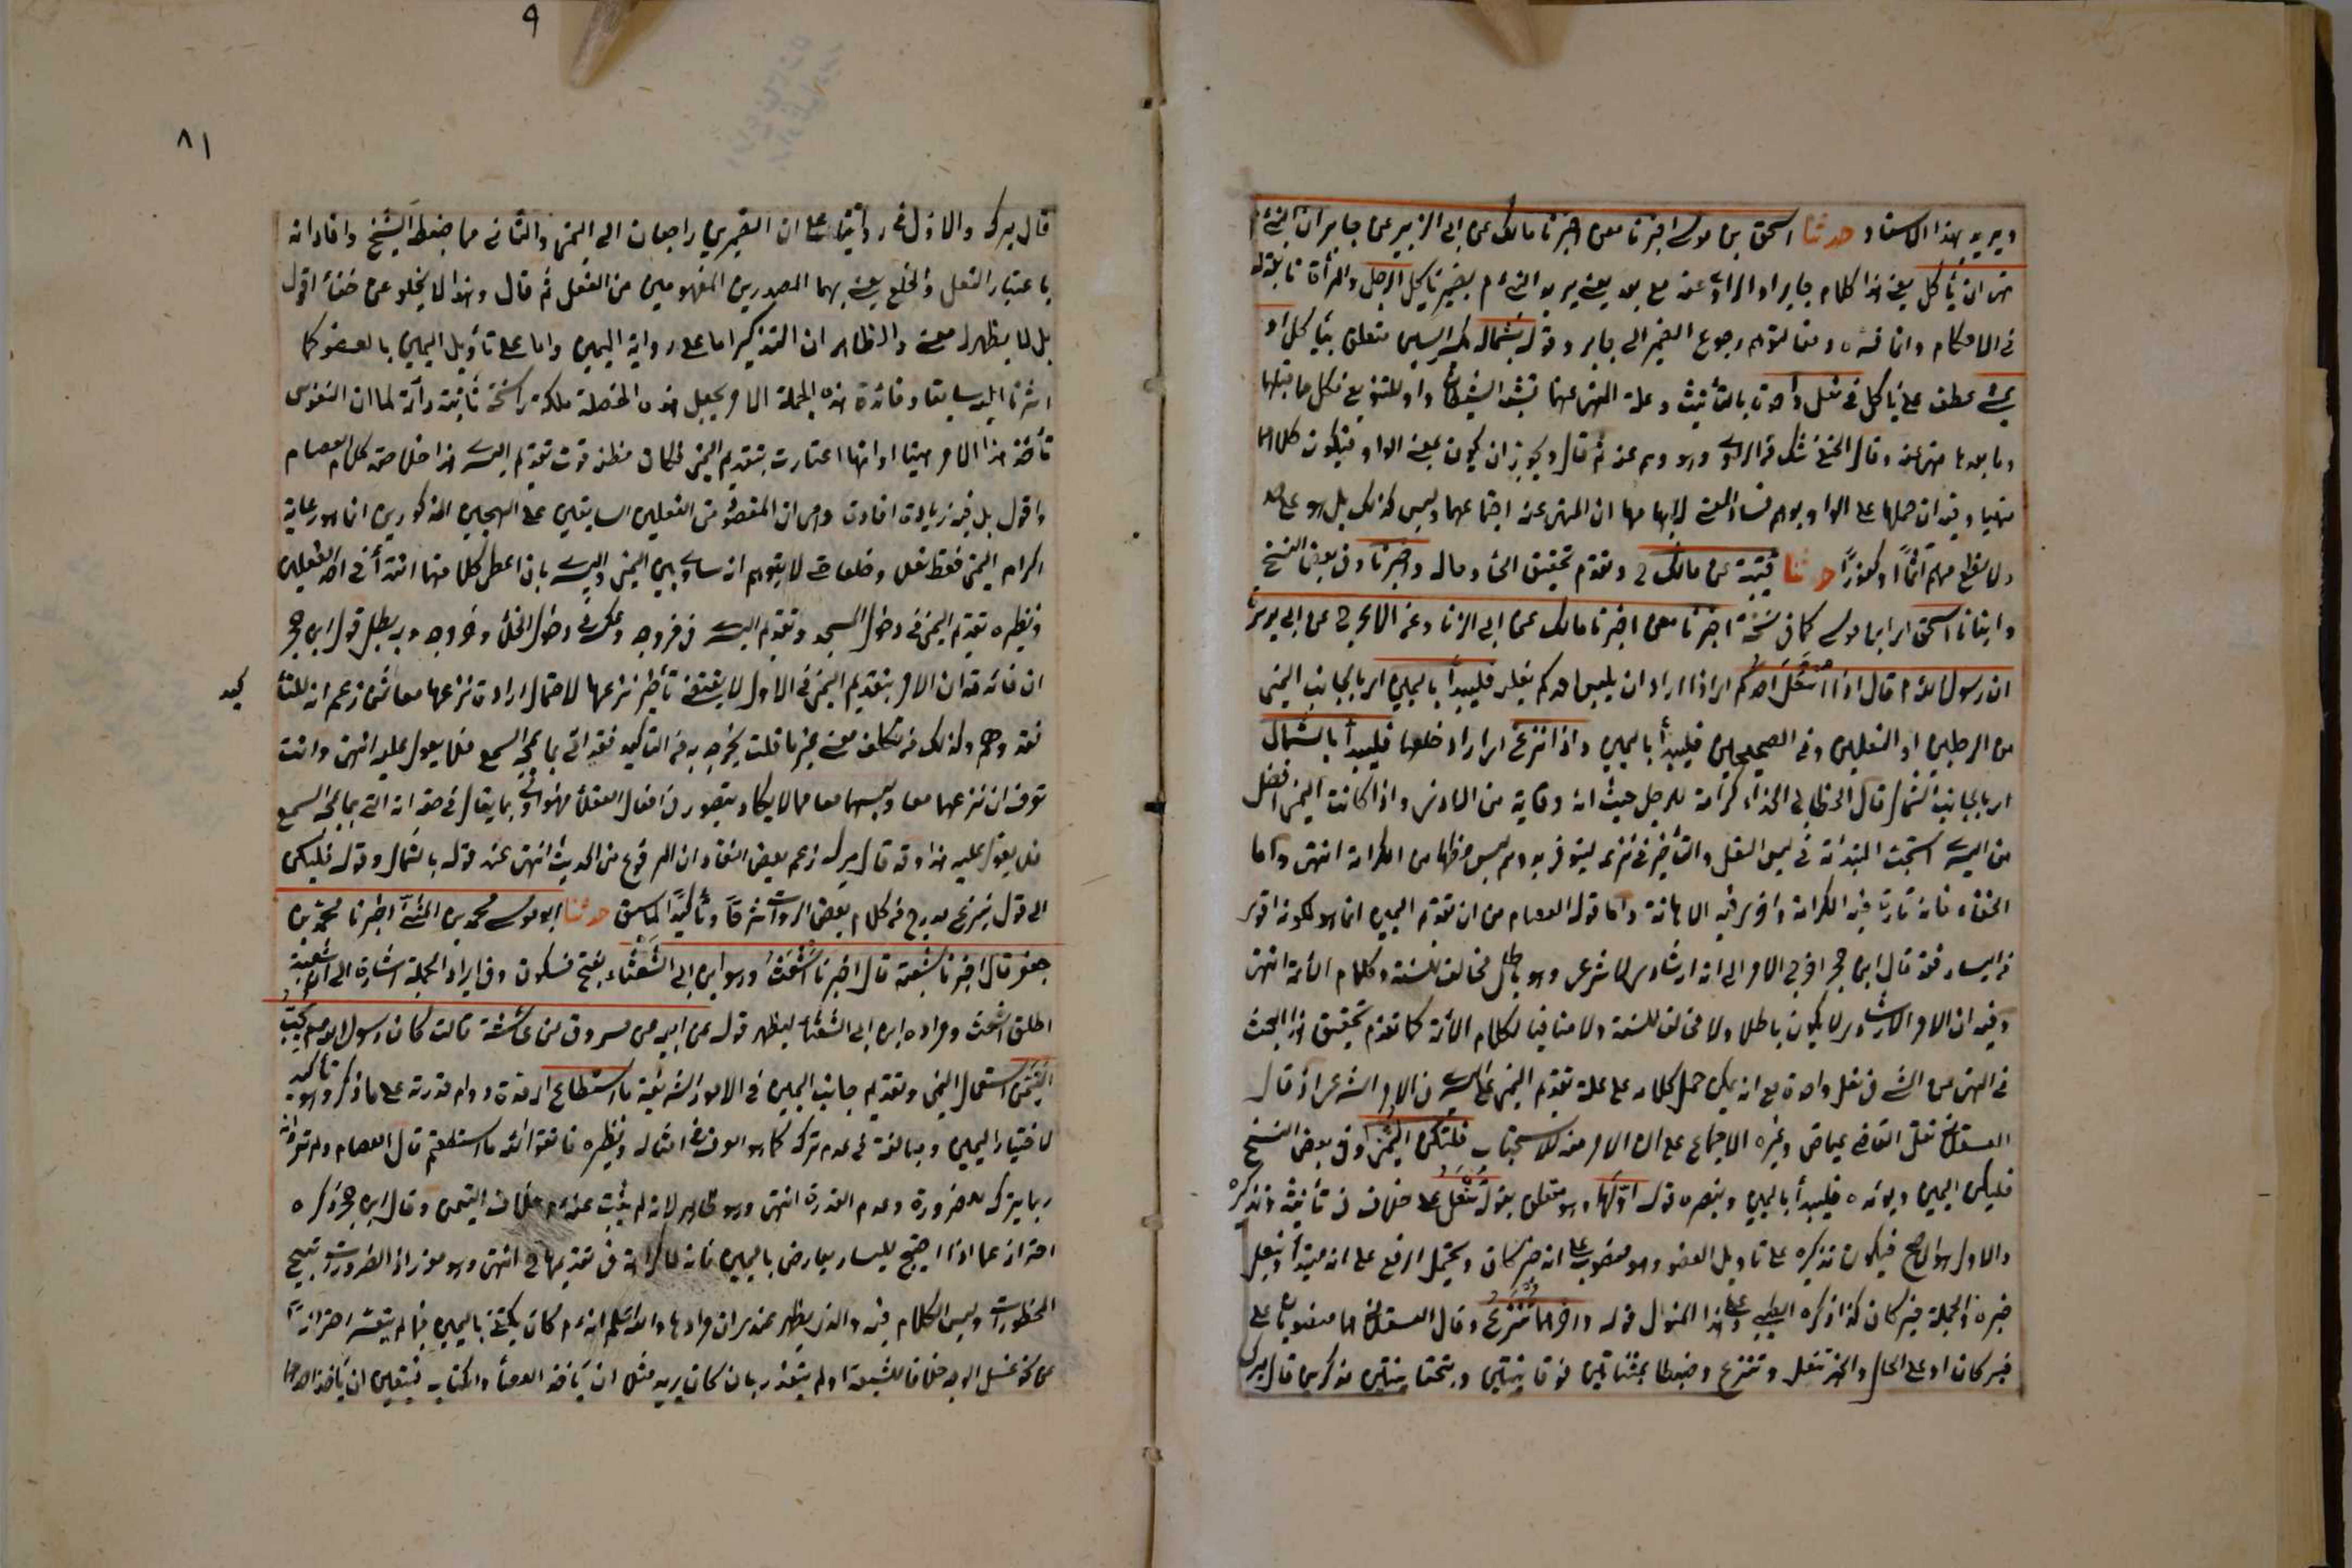 ويريد بهذا الاسناد حدثنا اسحق بن موسى اخبرنا معن اخبرنا مالك عن ابى الزبير عن جابر ان النبى
نهى ان يأكل يعنى هذا كلام جابر او الراوى عنه يعنى يريد النبى بضمير يأكل الرجل والمرأة تابعة له
فى الاحكام رجوع الضمير الى جابر وقوله بشماله بكسر الشين متعلق بيأكل او
يمشى عطف على يأكل فى نعل واحدة بالتأنيث وعلة النهى عنهما تشبه الشيطان واو للتنويع فكل مما قبلها
وما بعدها منهى عنه وقال الحنفى شك من الراوى وهو وهم عنه ثم قال ويجوز ان يكون بمعنى الواو فيكون كلاهما
منهيا وفيه ان حملها على الواو يوهم فساد المعنى لايهامها ان المنهى عنه اجتماعهما وليس كذلك بل هو على حد
ولا تطع منهم آثما او كفورا حدثنا قتيبة عن مالك ح وتقدم تحقيق الحاء وماله واخبرنا وفى بعض النسخ
وانبأنا اسحق اى ابن موسى كما فى نسخة اخبرنا معن اخبرنا مالك عن ابى الزناد عن الاعرج عن ابى هريرة
ان رسول الله قال اذا انتعل احدكم اى اذا اراد ان يلبس احدكم نعله فليبدأ باليمين اى بالجانب اليمنى
من الرجلين او النعلين وفى الصحيحين فليبدأ باليمين واذا نزع اى اراد خلعها فليبدأ بالشمال
اى بالجانب الشمال قال الخطابى الحذاء كرامة للرجل حيث انه وقاية من الاذى واذا كانت اليمنى افضل
من اليسرى استحبت البداءة فى لبس النعل والتأخير فى نزعه ليتوفر بدوام لبس حظها من الكرامة انتهى واما
الخفاء فانه تارة فيه الكرامة واخرى فيه الاهانة واما قول العصام من ان تقديم اليمين انما هو لكونه اقوى
من اليسار فقد قال ابن حجر اخرج الامر الى انه ارشادى لا شرعى وهو باطل مخالف للسنة وكلام الائمة انتهى
وفيه ان الامر الارشادى لا يكون باطلا ولا مخالف للسنة ولا منافيا لكلام الائمة كما تقدم تحقيق هذا البحث
فى النهى عن المشى فى نعل واحدة مع انه يمكن حمل كلامه على علة تقديم اليمنى على اليسرى فى الامر الشرعى اذ قال
العسقلانى نقل القاضى عياض وغيره الاجماع على ان الامر فيه للاستحباب فلتكن اليمنى وفى بعض النسخ
فليكن اليمين ويؤيده فليبدأ باليمين وينصره قوله اولهما وهو متعلق بقوله تنعل على خلاف فى تأنيثه وتذكيره
والاول هو الاصح فيكون تذكيره على تأويل العضو وهو منصوب على انه خبر كان ويحتمل الرفع على انه مبتدأ وتنعل
خبره والجملة خبر كان كذا ذكره الطيبى وعلى هذا المنوال قوله وآخرهما تنزع وقال العسقلانى هما منصوبان على
خبر كان او على الحال والخبر تنعل وتنزع وضبطا بمثناتين فوقانيتين وبتحتانيتين مذكرين قال ميرك
٨١
قال ميرك والاول فى روايتنا على ان الضميرين راجعان الى اليمنى والثانى مما ضبطه الشيخ وافاد انه
باعتبار النعل والخلع يعنى بهما المصدرين المفهومين من الفعل ثم قال وهذا لا يخلو عن خفاء اقول
بل لا يظهر له معنى والظاهر ان التذكير اما على رواية اليمين واما على تأويل اليمين بالعضو كما
اشرنا اليه سابقا وفائدة هذه الجملة الامر بجعل هذه الخصلة ملكة راسخة ثابتة دائمة لما ان النفوس
تأخذ هذا الامر هينا او انها اعتادت بتقديم اليمنى فكان مظنة فوت تقديم اليسرى هذا خلاصة كلام العصام
واقول بل فيه زيادة افادة وهى ان المقصود من الفعلين السابقين على النهجين المذكورين انما هو رعاية
اكرام اليمنى فقط نعلا وخلعا حتى لا يتوهم انه ساوى بين اليمنى واليسرى بان اعطى كلا منهما ابتداء فى احد الفعلين
ونظيره تقديم اليمنى فى دخول المسجد وتقديم اليسرى فى خروجه وعكس فى دخول الخلاء وخروجه وبه يبطل قول ابن حجر
ان فائدته ان الامر بتقديم اليمنى فى الاول لا يقتضى تأخير نزعها لاحتمال ارادة نزعهما معا فمن زعم انه للتأكيد
فقد وهم وكذلك من تكلف معنى غير ما قلت يخرجه به من التأكيد فقد اتى بما يمجه السمع فلا يعول عليه انتهى وانت
تعرف ان نزعهما معا ولبسهما معا مما لا يكاد يتصور فى افعال العقلاء فهو اولى بما يقال فى حقه انه اتى بما يمجه السمع
فلا يعول عليه هذا وقد قال ميرك زعم بعض النقاد ان المرفوع من الحديث انتهى عند قوله بالشمال وقوله فليكن
الى قوله ينزع مدرج من كلام بعض الرواة شرحا وتأكيدا لما سبق حدثنا ابو موسى محمد بن المثنى اخبرنا محمد بن
جعفر قال اخبرنا شعبة قال اخبرنا اشعث وهو ابن ابى الشعثاء بفتح فسكون وفى ايراد الجملة اشارة الى ان شعبة
اطلق اشعث ومراده ابن ابى الشعثاء ليظهر قوله عن ابيه عن مسروق عن عائشة قالت كان رسول الله صلعم يحب
التيمن استعمال اليمنى وتقديم جانب اليمين فى الامور الشريفة ما استطاع اى مدة دوام قدرته على ما ذكر وهو تأكيد
لاختيار اليمين ومبالغة فى عدم تركه كما هو العرف فى امثاله ونظيره فاتقوا الله ما استطعتم قال العصام ولم ترد انه
ربما يترك لضرورة وعدم القدرة انتهى وهو ظاهر لانه لم يثبت عنه خلاف التيمن وقال ابن حجر ذكره
احترازا عما اذا احتيج لليسار يعارض باليمين فانه لا كراهة فى تقديمها ح انتهى وهو معزز اذ الضرورات تبيح
المحظورات وليس الكلام فيه والذى يظهر عندى ان مرادها والله اعلم انه كان يكتفى باليمين فيما لم يتعسر احترازا
عن نحو غسل الوجه خلافا للشيعة او لم يتعذر بان كان يريد مثلا ان يأخذ العصا والكتاب فيتعين ان يأخذ احدهما